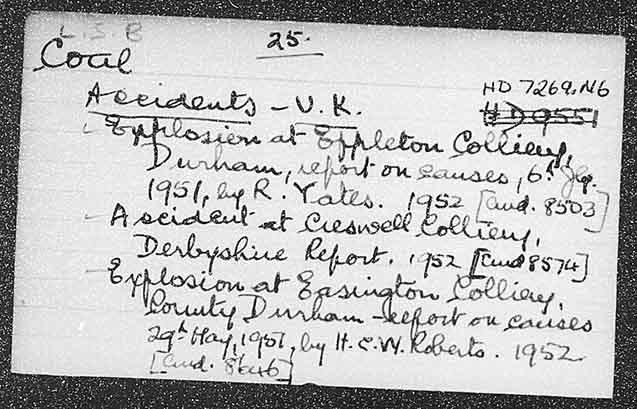 L.S.B
25.
Coal
HD 7269.N6
Accidents - U.K.
HD9551
- Explosion at Eppleton Colliery,
Durham, report on causes, 6th July.
1951, by R. Yates. 1952 [Cmd. 8503]
- Accident at Creswell Colliery,
Derbyshire Report. 1952 [Cmd 8574]
- Explosion at Easington Colliery,
County Durham - report on causes
29th May, 1951, by H.C.W. Roberts. 1952
[Cmd. 8646]